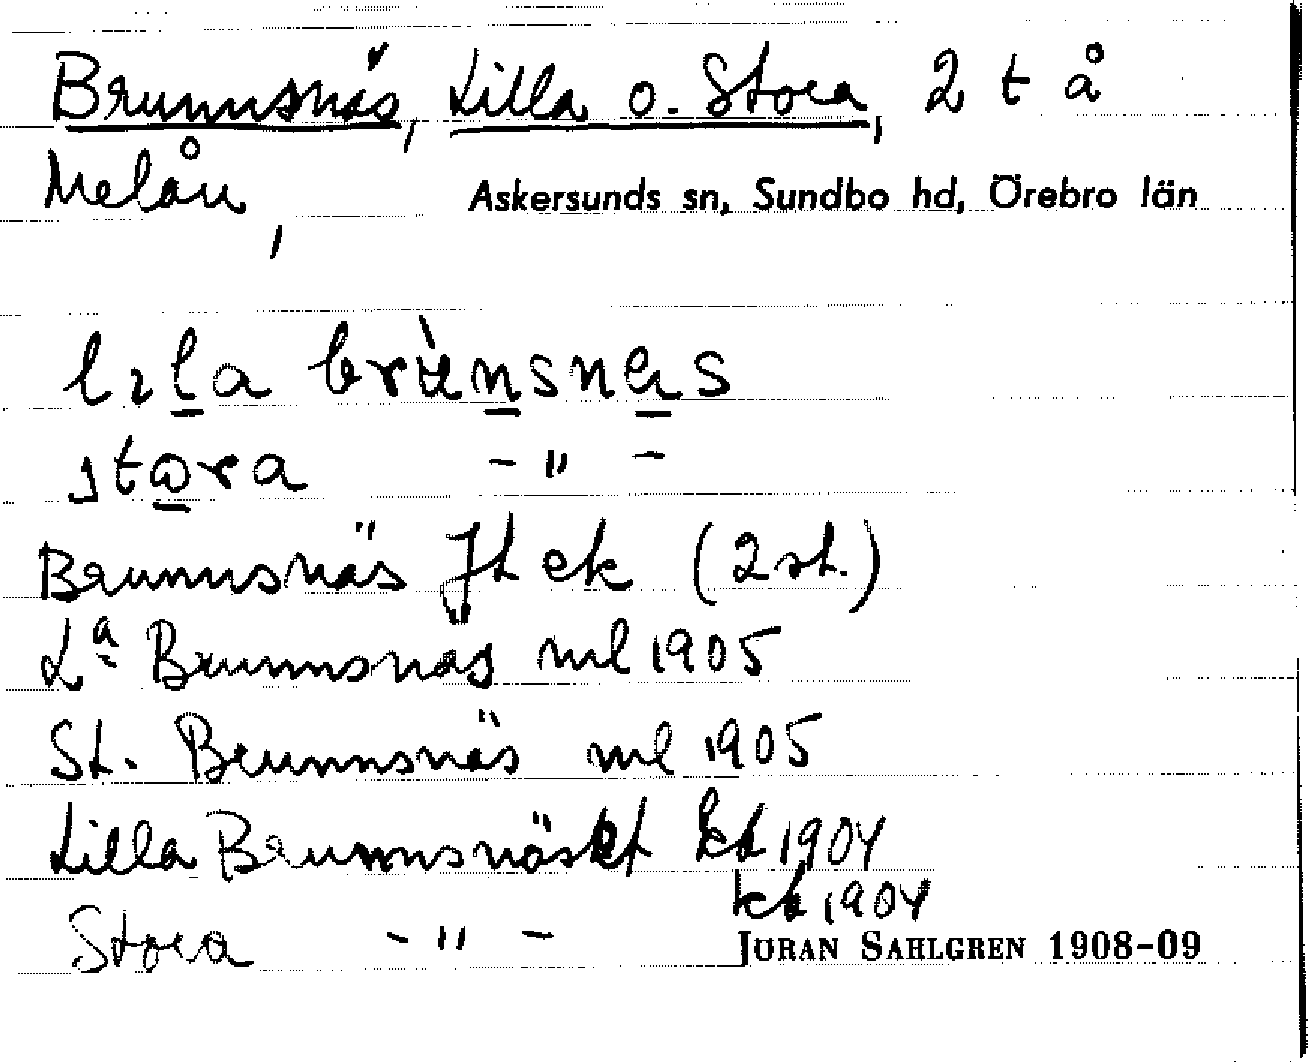 Brunnsnäs, Lilla o. Stora, 2 t å
Melån, Askersunds sn, Sundbo hd, Örebro län
lɩla brùnsnäs
stora - " -
Brunnsnäs Jt ek (2 st.)
La Brunnsnäs ml 1905
St. Brunnsnäs ml 1905
Lilla Brunnsnäs kt 1904
Stora - " - kt 1904
JÖRAN SAHLGREN 1908-09